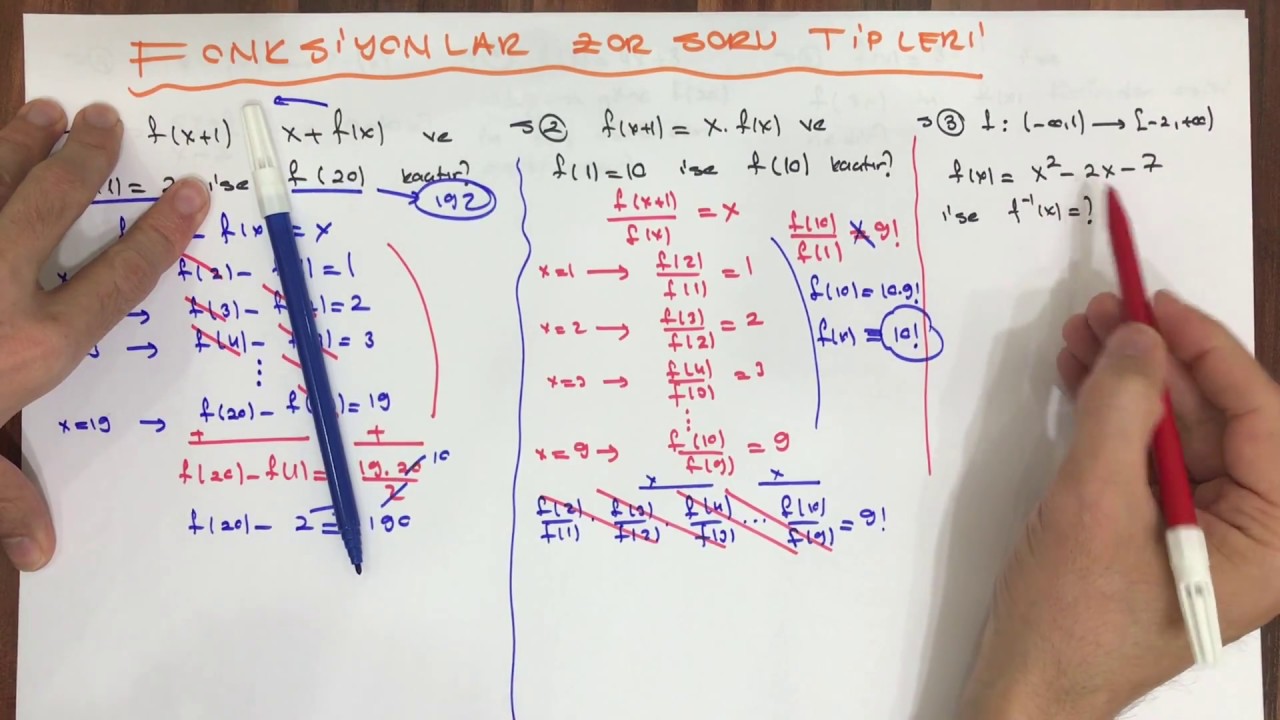 FONKSİYONLAR ZOR SORU TİPLERİ
f(x+1) x+f(x) ve
(1)= 2 ise f(20) kaçtır?
192
f(x) = x
f(2)- )=1
f(3)- )=2
→ f(4)- )=3
⋮
x=19 → f(20)-f( )=19
+ +
f(20)-f(1)= 19.20/2 10
f(20)- 2 = 190
→② f(x+1)= x.f(x) ve
f(1)=10 ise f(10) kaçtır?
f(x+1)/f(x) = x
x=1 → f(2)/f(1) = 1
x=2 → f(3)/f(2) = 2
x=3 → f(4)/f(3) = 3
⋮
x=9 → f(10)/f(9) = 9
x x
f(2)/f(1) . f(3)/f(2) . f(4)/f(3) ... f(10)/f(9) = 9!
f(10)/f(1) = 9!
f(10)=10.9!
= 10!
→③ f: (-∞,1) → [-2,+∞)
f(x)= x²-2x-7
ise f⁻¹(x)=?